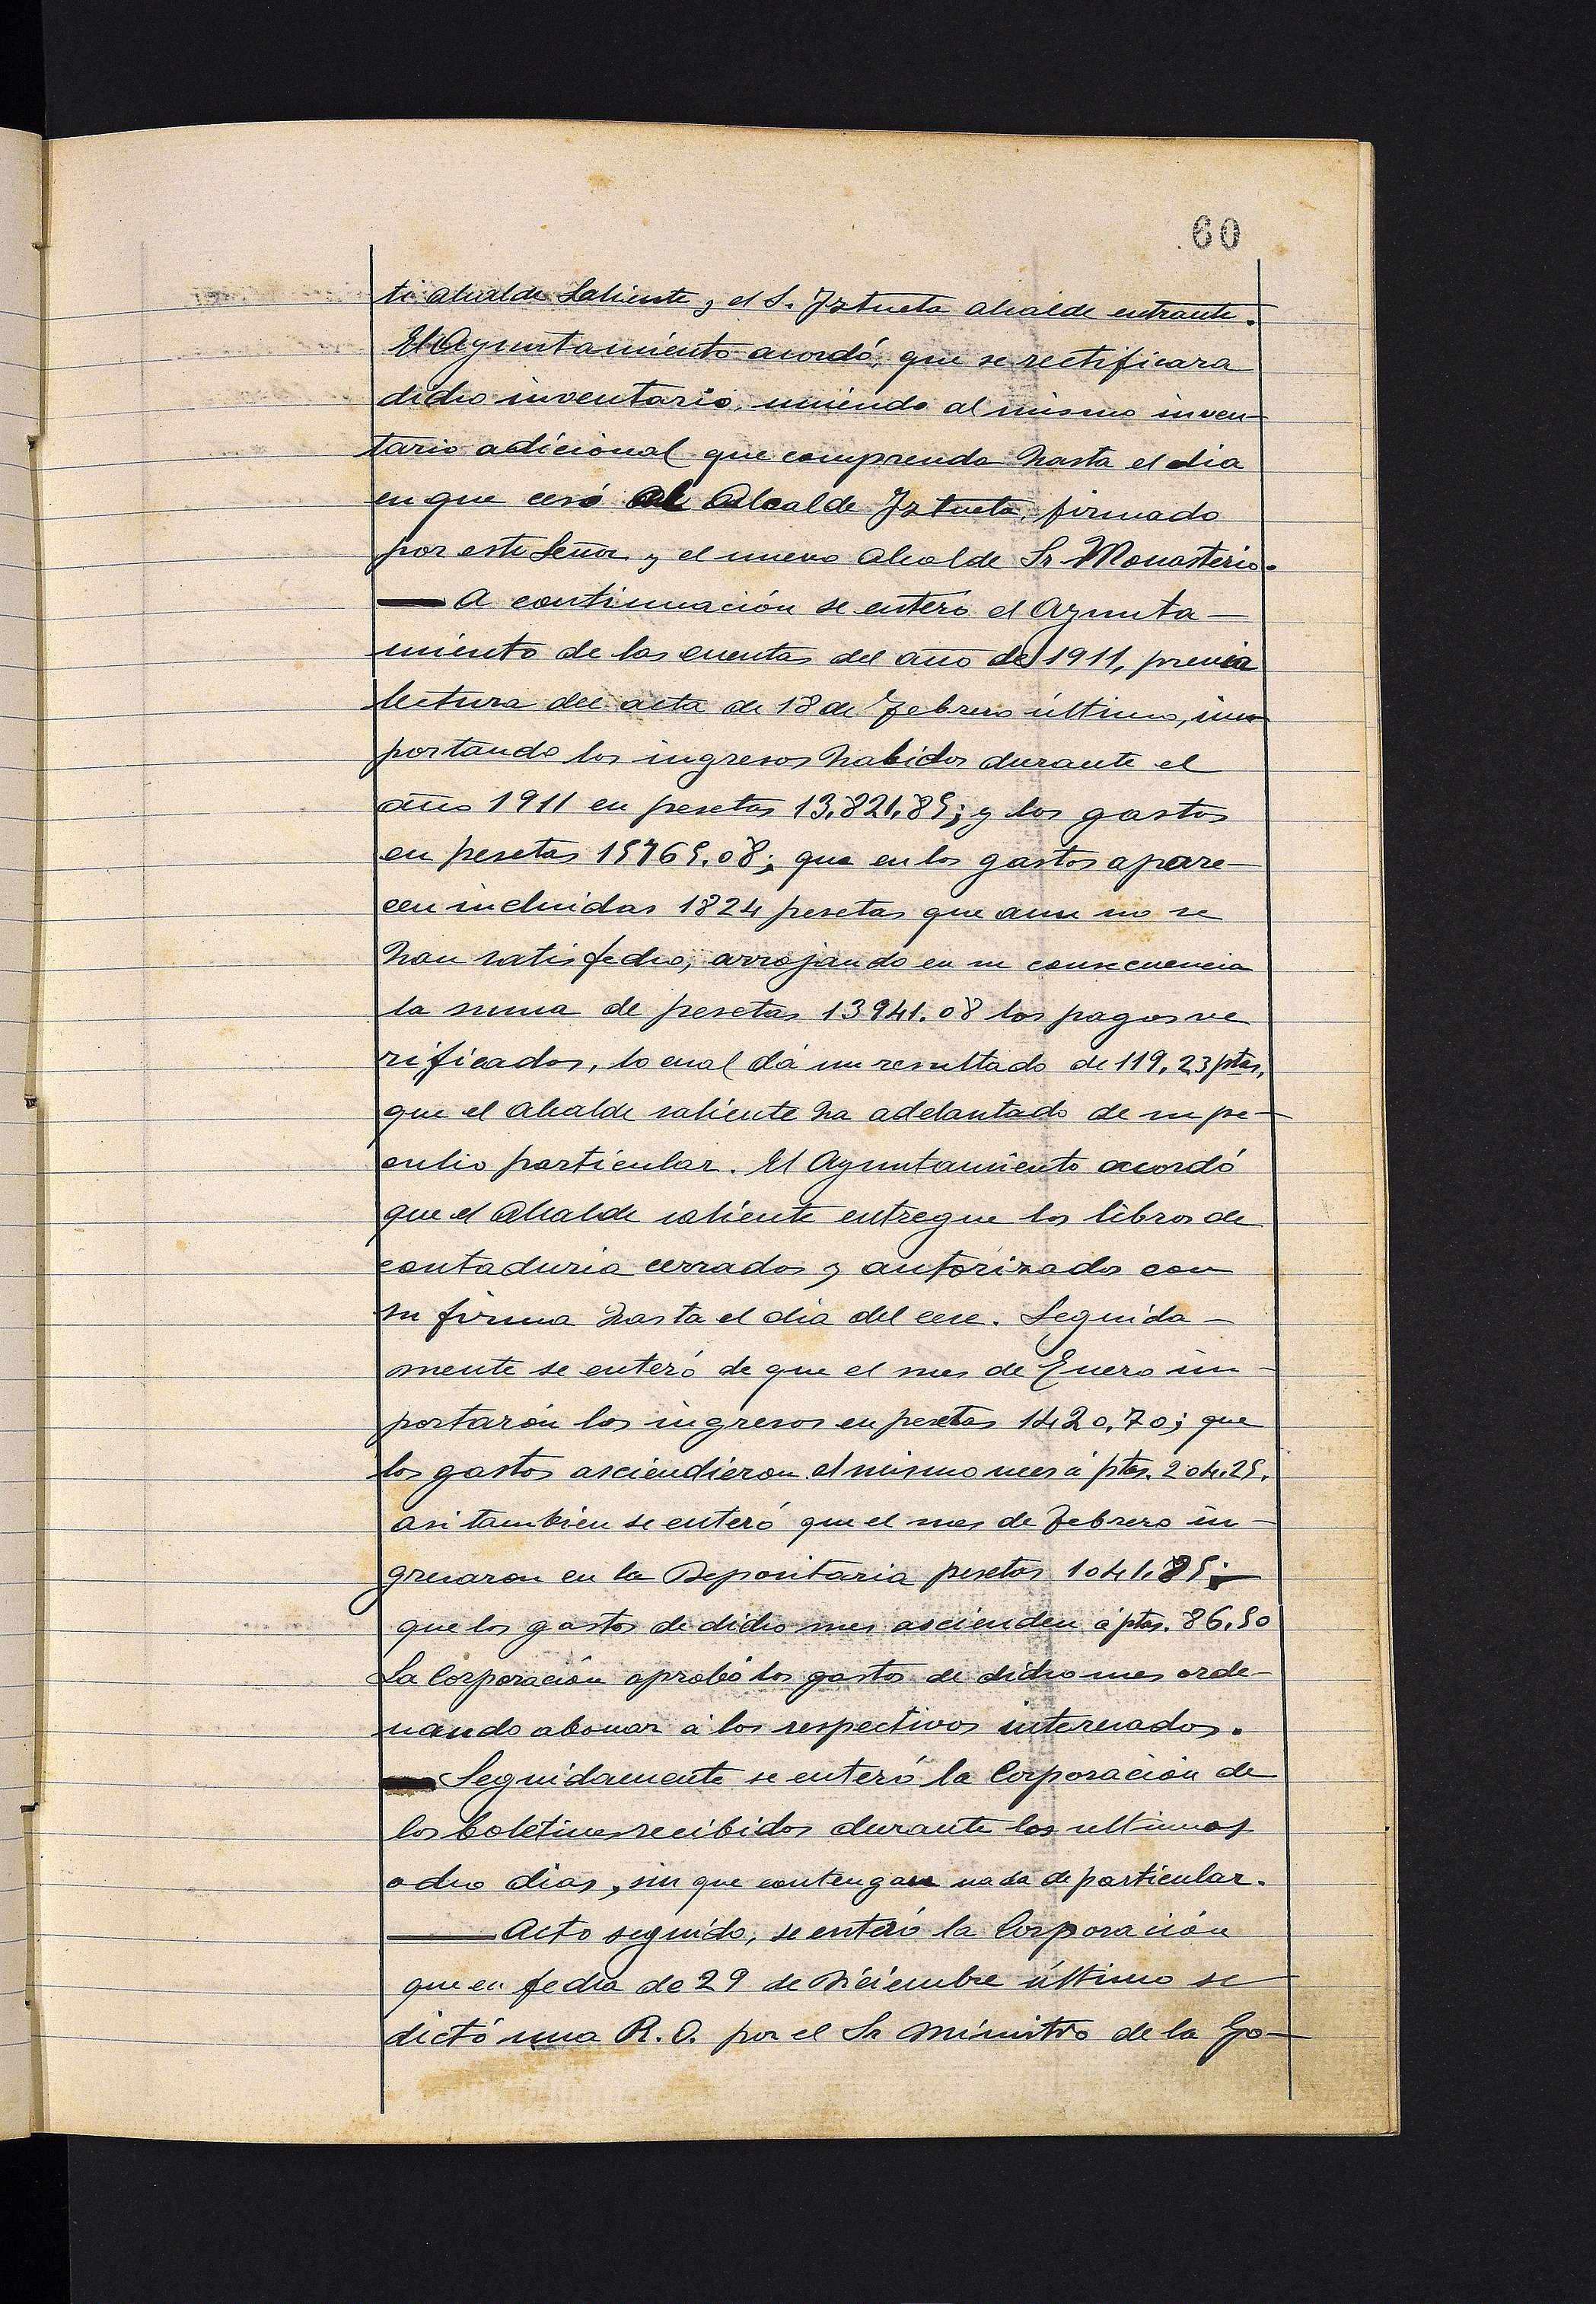 60
te alcalde Saliente y el S. Iztueta alcalde entrante.
El Ayuntamiento acordó, que se rectificara
dicho inventario, uniendo al mismo inven-
tario adicional que comprenda hasta el dia
en que cesó el Alcalde Iztueta, firmado
por este Señor y el nuevo Alcalde Sr Monasterio.
— A continuación se enteró el Ayunta-
miento de las cuentas del año de 1911, previa
lectura del acta de 18 de Febrero último, im
portando los ingresos habidos durante el
año 1911 en pesetas 13.821.85; y los gastos
en pesetas 15765.08; que en los gastos apare-
cen incluidas 1824 pesetas que aun no se
han satisfecho, arrojando en su consecuencia
la suma de pesetas 13941.08 los pagos ve
rificados, lo cual dá un resultado de 119,23 ptas,
que el Alcalde saliente ha adelantado de su pe-
culio particular. El Ayuntamiento acordó
que el Alcalde saliente entregue los libros de
contaduria cerrados y autorizados con
su firma hasta el dia del cese. Seguida-
mente se enteró de que el mes de Enero im-
portarón los ingresos en pesetas 1420,70; que
los gastos asciendieron el mismo mes á ptas. 204.25.
asi tambien se enteró que el mes de Febrero in-
gresaron en la Depositaria pesetas 1041,85;
que los gastos de dicho mes ascienden á ptas. 86.50
La Corporación aprobó los gastos de dicho mes orde-
nando abonar á los respectivos interesados.
— Seguidamente se enteró la Corporación de
los boletines recibidos durante los ultimos
ocho dias, sin que contengan nada de particular.
— Acto seguido, se enteró la Corporación
que en fecha de 29 de Diciembre último se
dictó una R. O. por el Sr Ministro de la Go-